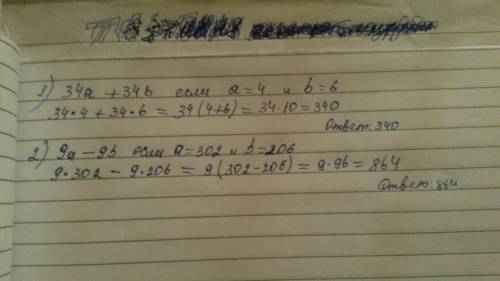 1) 34a + 34b если a=4 и b=6
34·4 + 34·6 = 34(4+6) = 34·10 = 340
Ответ: 340
2) 9a − 9b если a=302 и b=206
9·302 − 9·206 = 9(302−206) = 9·96 = 864
Ответ: 864.